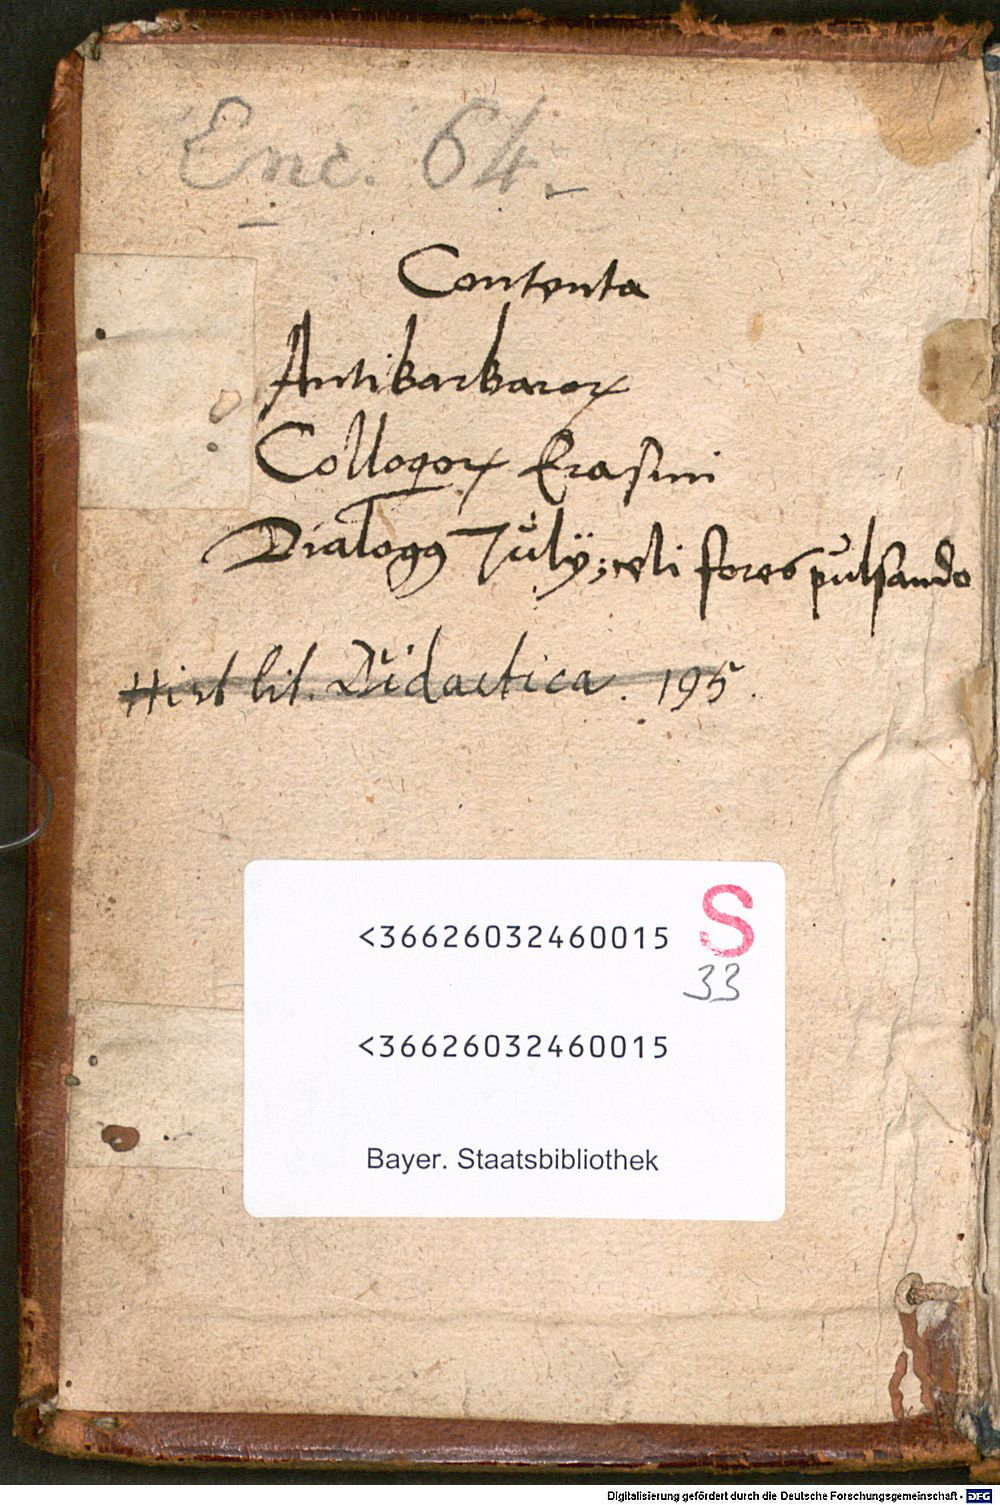 Enc. 64.
Contenta
Antibarbaroꝝ
Colloqoꝝ Erasmi
Dialogꝰ Julÿ; celi fores pulsando
Hist lit. Didactica. 195.
<36626032460015
S
33
<36626032460015
Bayer. Staatsbibliothek
Digitalisierung gefördert durch die Deutsche Forschungsgemeinschaft - DFG